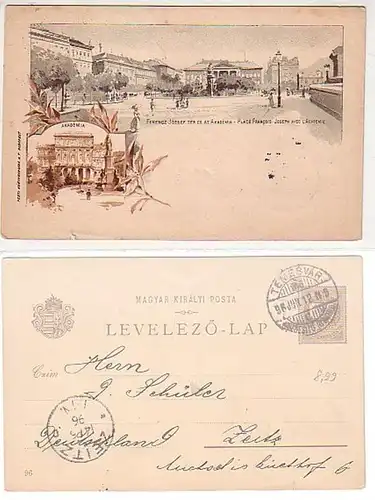 FERENCZ JÓZSEF TÉR ÉS AZ AKADÉMIA - PLACE FRANÇOIS JOSEPH AVEC L'ACADEMIE
AKADÉMIA
MAGYAR KIRÁLYI POSTA
LEVELEZŐ-LAP
TEMESVÁR
96 JUN. 12
Czím
Herrn
Schüler
Deutschland
Zeitz
ZEITZ
96
8,99
96
6